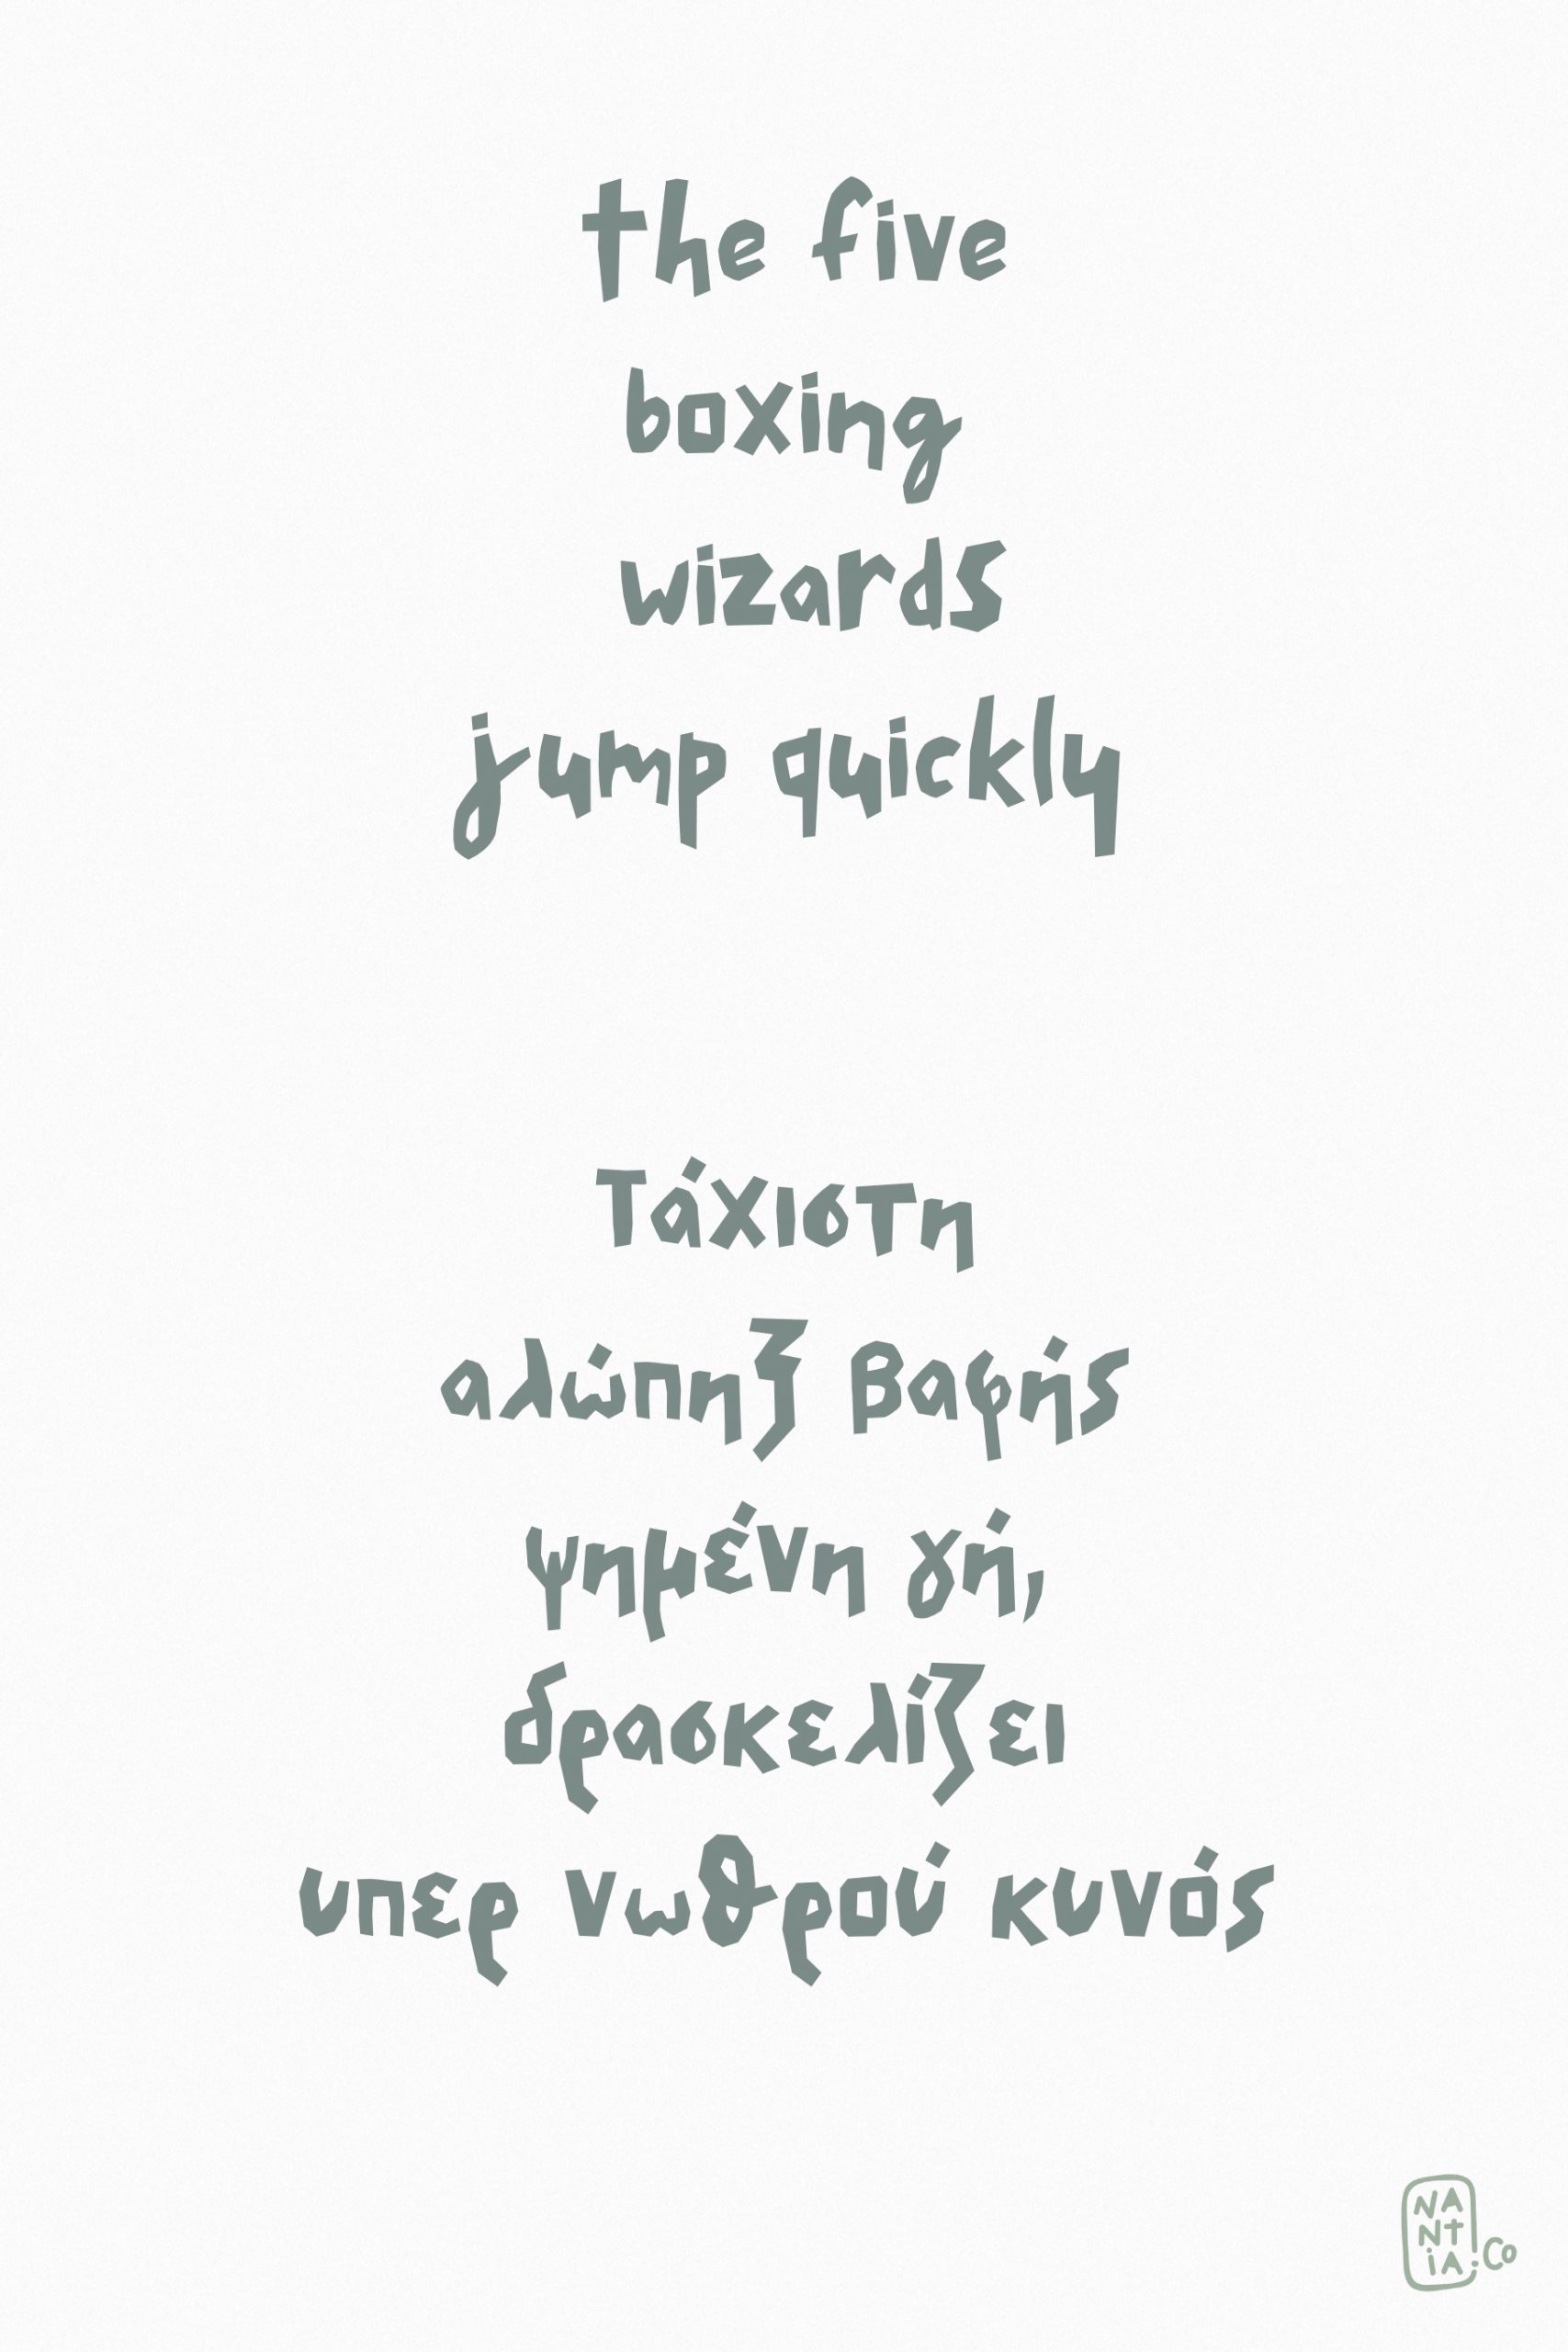 the five
boxing
wizards
jump quickly
Τάχιστη
αλώπηξ βαφής
ψημένη γή,
δρασκελίζει
υπερ νωθρού κυνός
NA
Nt
iA.Co